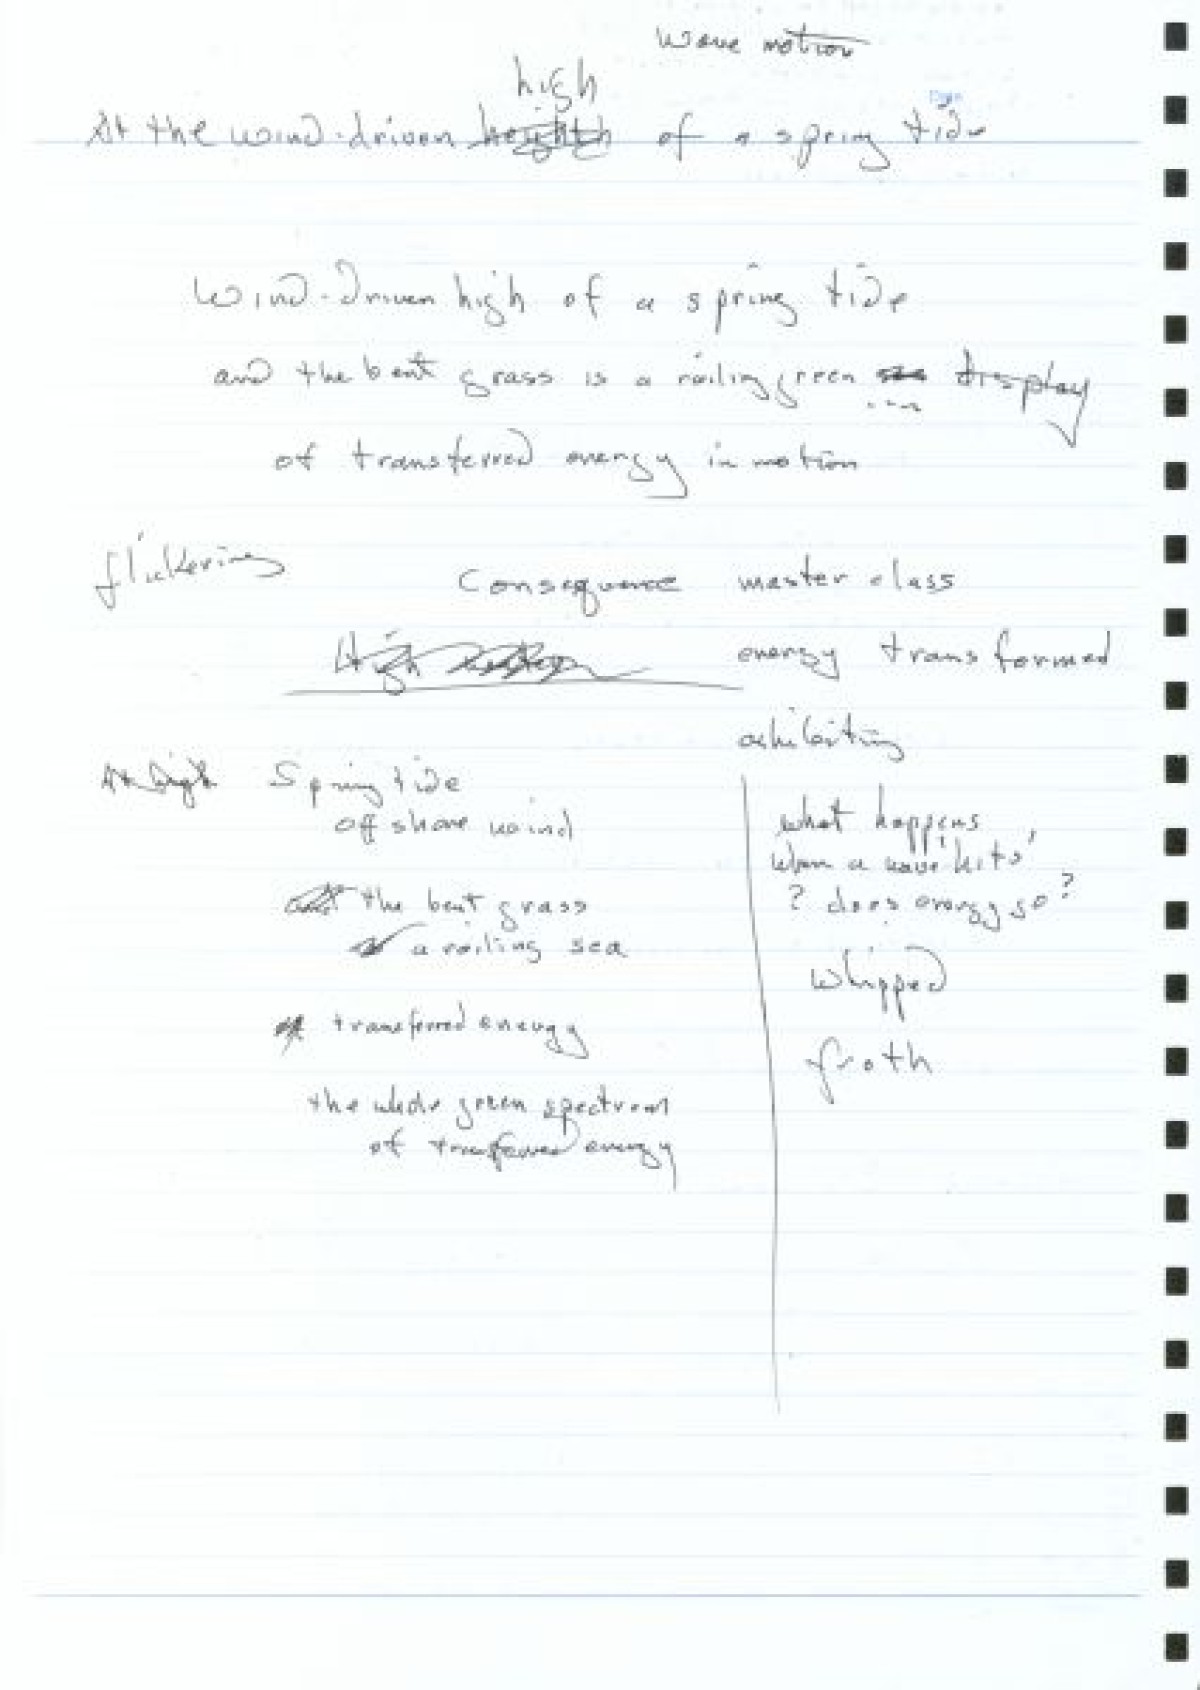 Wave motion
high
At the wind-driven height of a spring tide
Wind-driven high of a spring tide
and the bent grass is a roiling green sea display
of transferred energy in motion
flickering
Consequence master class
High
energy transformed
exhibiting
At high Spring tide
off shore wind
what happens
when a wave 'hits'
and the bent grass
? does energy go?
a roiling sea
whipped
of transferred energy
froth
the whole green spectrum
of transferred energy